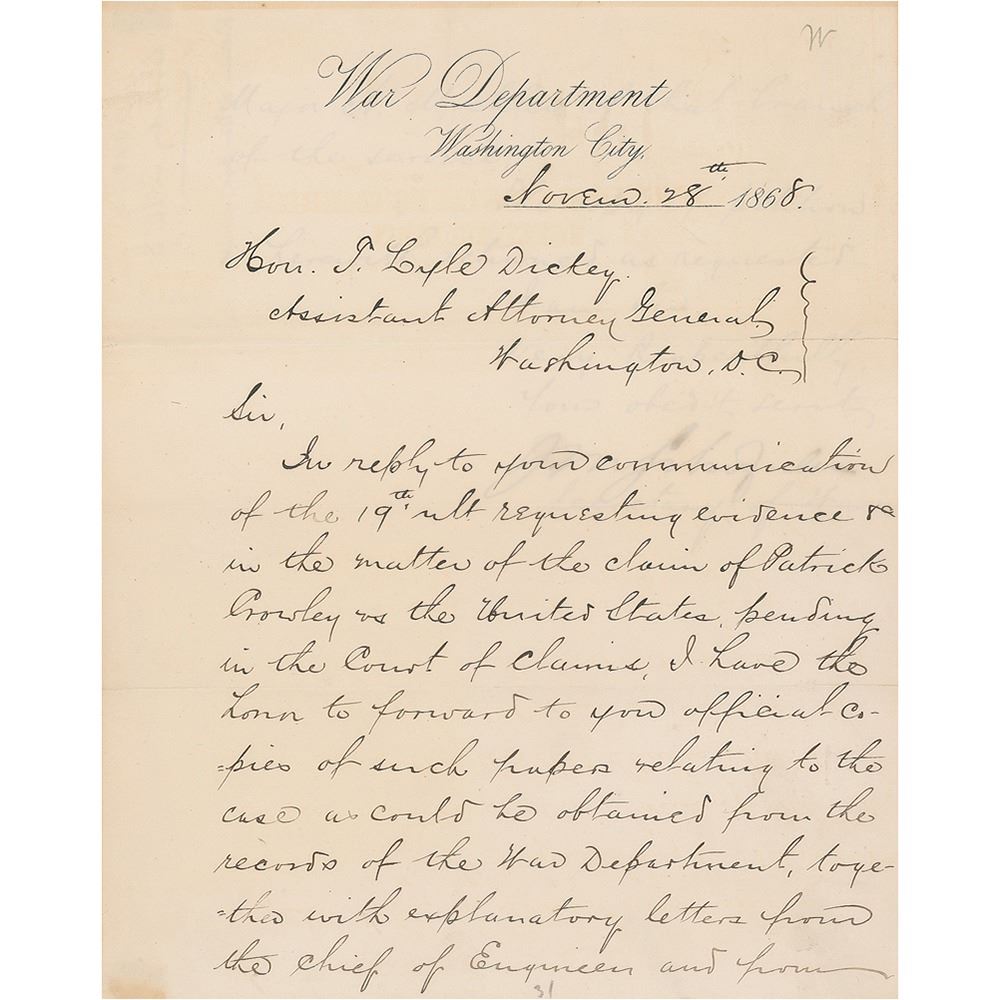 W
War Department
Washington City,
Novem. 28th 1868.
Hon. T. Lyle Dickey.
Assistant Attorney General,
Washington, D.C.
Sir,
In reply to your communication
of the 19th ult requesting evidence &c
in the matter of the claim of Patrick
Crowley vs the United States, pending
in the Court of Claims, I have the
honor to forward to you official co-
=pies of such papers relating to the
case as could be obtained from the
records of the War Department, toge-
=ther with explanatory letters from
the Chief of Engineers and from
31